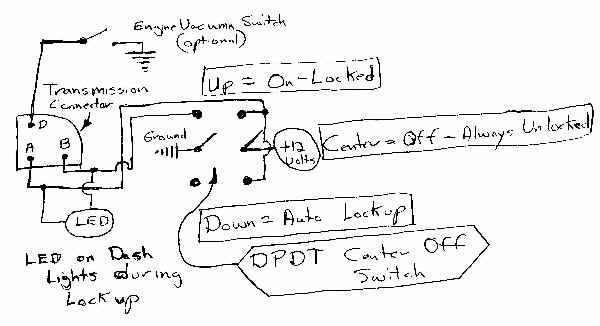 Engine Vacuum Switch
(optional)
Up = On-Locked
Transmission
Connector
D
A
B
Ground
+12
Volts
Center = Off - Always Unlocked
LED
Down = Auto Lockup
LED on Dash
Lights during
Lockup
DPDT Center Off
Switch